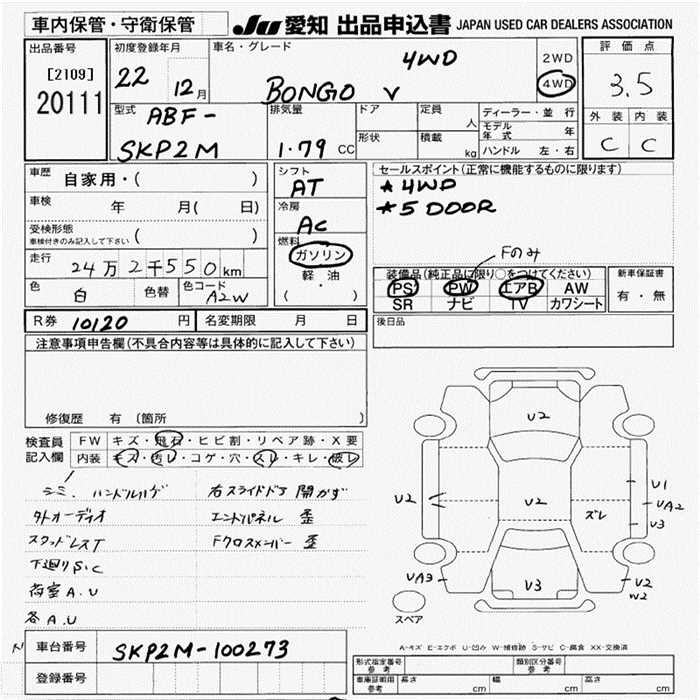 車内保管・守衛保管
JU 愛知 出品申込書 JAPAN USED CAR DEALERS ASSOCIATION
出品番号
[2109]
20111
初度登録年月
22 12月
車名・グレード
4WD
BONGO V
2WD
4WD
評価点
3.5
外装 内装
C C
型式
ABF-
SKP2M
排気量
1.79 CC
ドア
定員
人
形状
積載
kg
ディーラー・並行
モデル年式 年
ハンドル 左・右
車歴 自家用・( )
車検 年 月( 日)
受検形態
車検付きのみ記入して下さい ( )
走行 24万2千550km
色 白 色替 色コード A2W
シフト
AT
冷房
AC
燃料
ガソリン
軽・油
( )
セールスポイント(正常に機能するものに限ります)
★4WD
★5DOOR
Fのみ
装備品(純正品に限り○をつけてください)
PS PW エアB AW
SR ナビ TV カワシート
新車保証書
有・無
R券 10120 円 名変期限 月 日
後日品
注意事項申告欄(不具合内容等は具体的に記入して下さい)
修復歴 有 〔箇所 〕
検査員記入欄
FW キズ・飛石・ヒビ割・リペア跡・X要
内装 キズ・汚レ・コゲ・穴・スレ・キレ・破レ
シミ、ハンドルハゲ 右スライドドア開かず
外オーディオ エンドパネル 歪
スタッドレスT Fクロスメンバー 歪
下廻りS.C
荷室A.U
各A.U
U2
U2 U2 ズレ U1
UA2
U3
UA3 U3 U2
W2
スペア
A-キズ E-エクボ U-凹み W-補修跡 S-サビ C-腐食 XX-交換済
車台番号 SKP2M-100273
登録番号
形式指定番号 参考
類別区分番号 参考
車庫証明用 参考 長さ cm 幅 cm 高さ cm